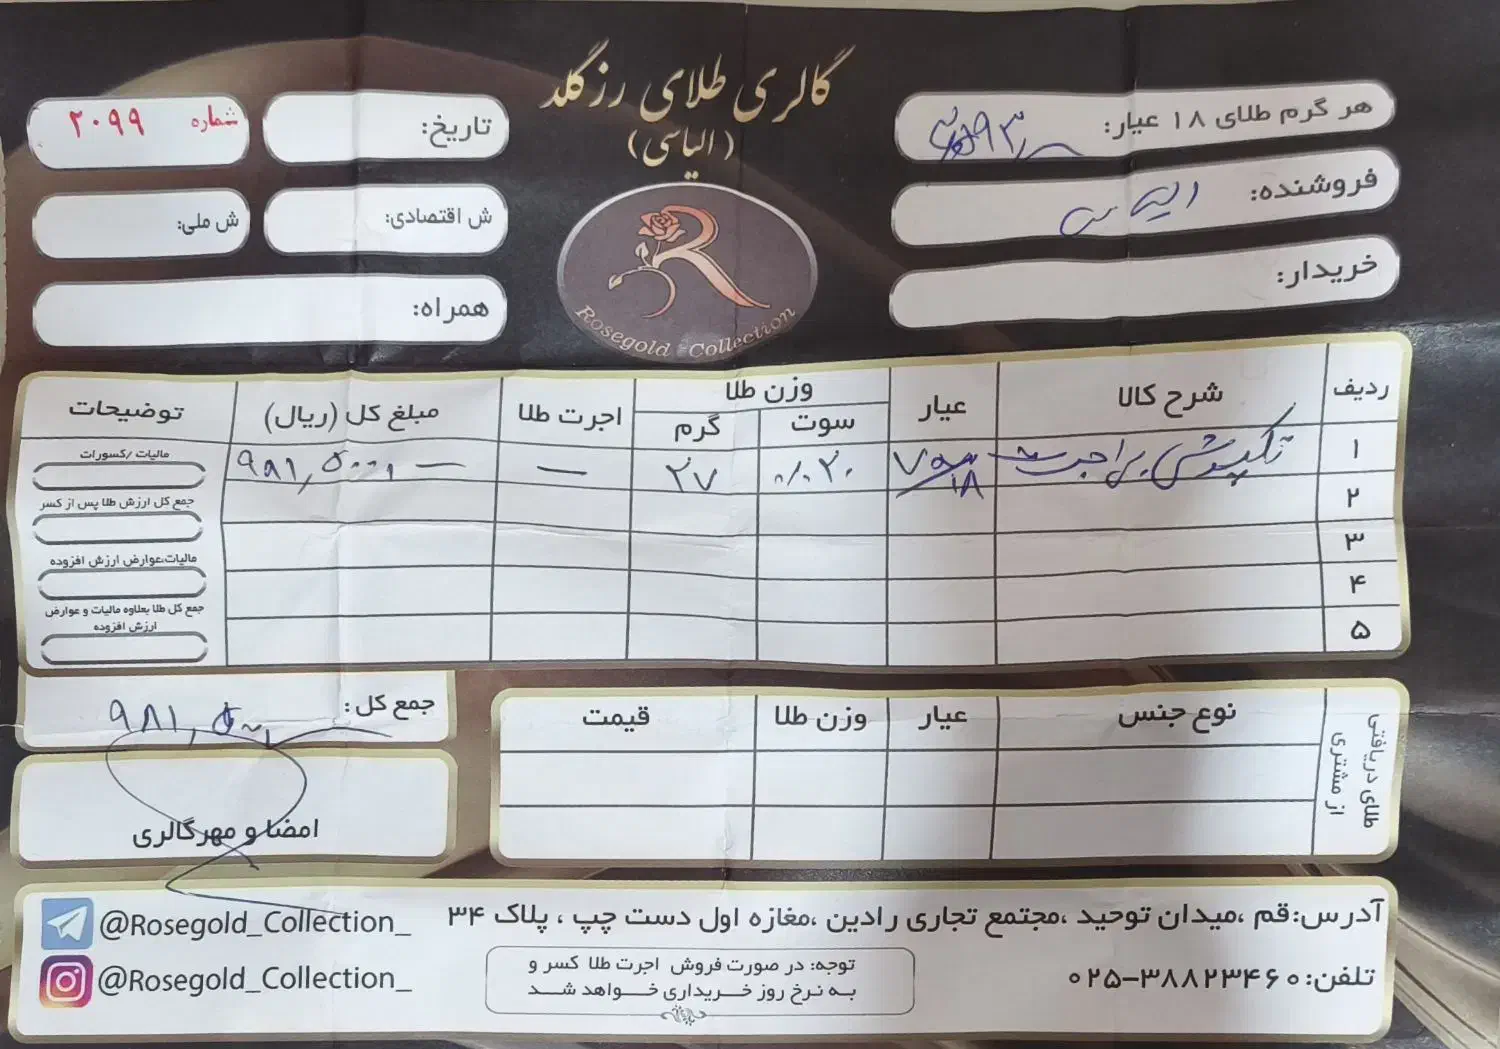 گالری طلای رزگلد
(الیاسی)
Rosegold Collection
هر گرم طلای ۱۸ عیار:
فروشنده:
خریدار:
تاریخ:
شماره ۲۰۹۹
ش اقتصادی:
ش ملی:
همراه:
ردیف شرح کالا عیار وزن طلا اجرت طلا مبلغ کل (ریال) توضیحات
سوت گرم
۱ تکپوش بی اجرت ۷۵۰ ۱۸ ۰/۰۲۰ ۲۷ — ۹۸۱,۵۰۰,۰
۲
۳
۴
۵
مالیات /کسورات
جمع کل ارزش طلا پس از کسر
مالیات،عوارض ارزش افزوده
جمع کل طلا بعلاوه مالیات و عوارض
ارزش افزوده
جمع کل:
امضا و مهر گالری
طلای دریافتی
از مشتری
نوع جنس عیار وزن طلا قیمت
آدرس:قم ،میدان توحید ،مجتمع تجاری رادین ،مغازه اول دست چپ ، پلاک ۳۴
تلفن:۰۲۵-۳۸۸۲۳۴۶۰
توجه: در صورت فروش اجرت طلا کسر و
به نرخ روز خریداری خواهد شد
@Rosegold_Collection_
@Rosegold_Collection_